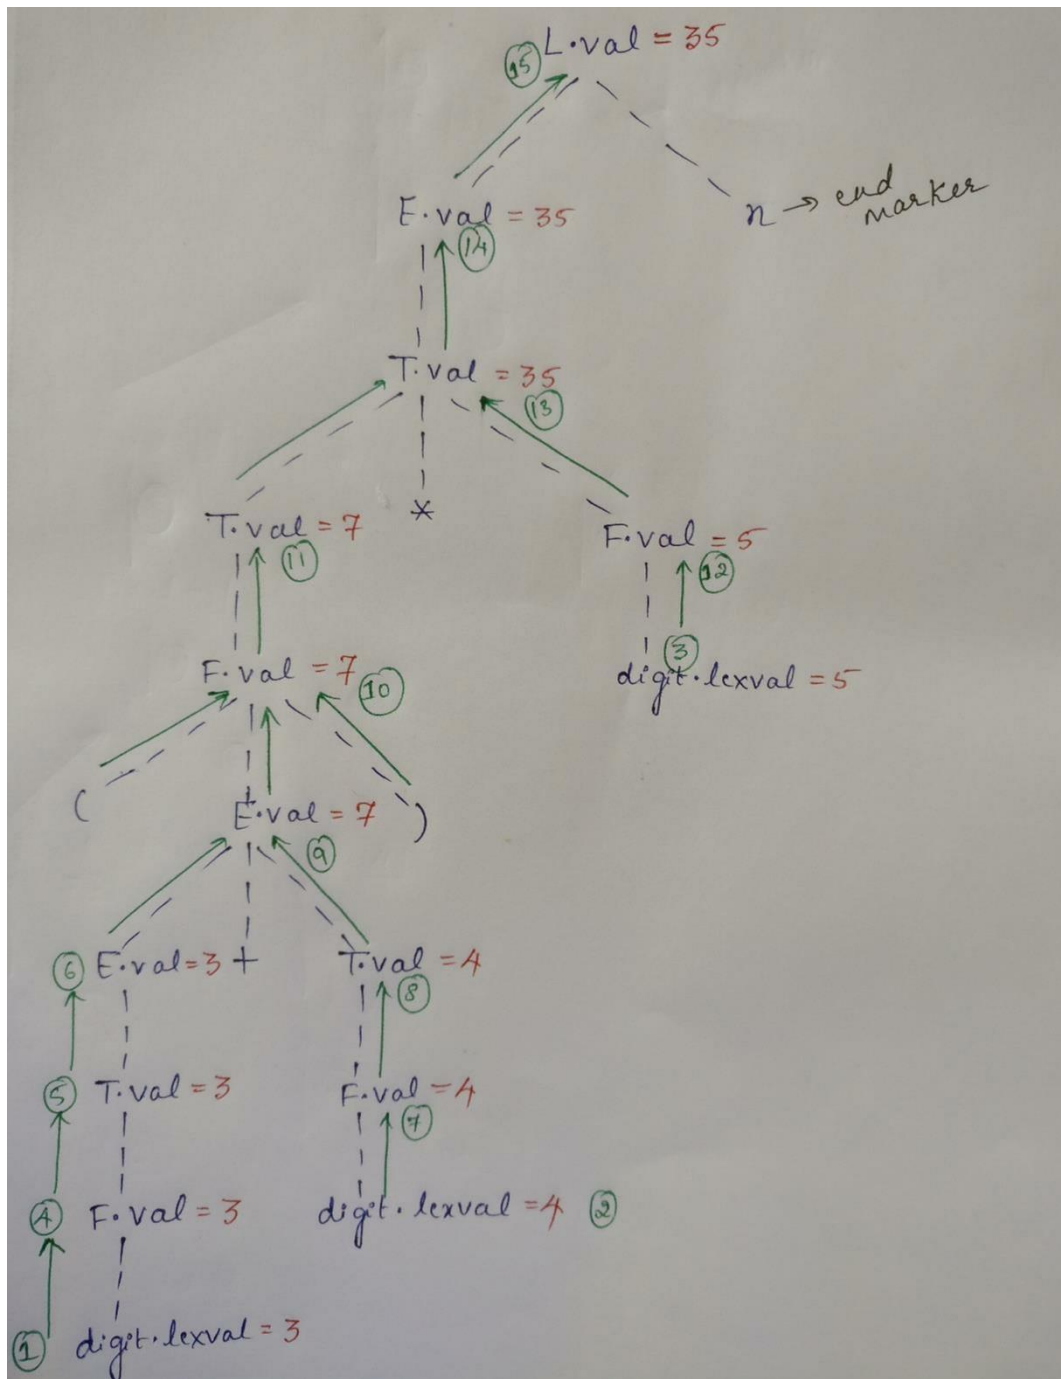 L.val = 35
15
E.val = 35
n → end marker
14
T.val = 35
13
T.val = 7
*
F.val = 5
11
12
F.val = 7
10
3
digit.lexval = 5
(
E.val = 7
)
9
6 E.val = 3 + T.val = 4
8
5 T.val = 3
F.val = 4
7
4 F.val = 3
digit.lexval = 4 2
1 digit.lexval = 3